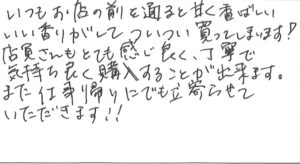 いつもお店の前を通ると甘く香ばしい
いい香りがして、ついつい買ってしまいます!
店員さんもとても感じ良く、丁寧で
気持ち良く購入することが出来ます。
また仕事帰りにでも立寄らせて
いただきます!!